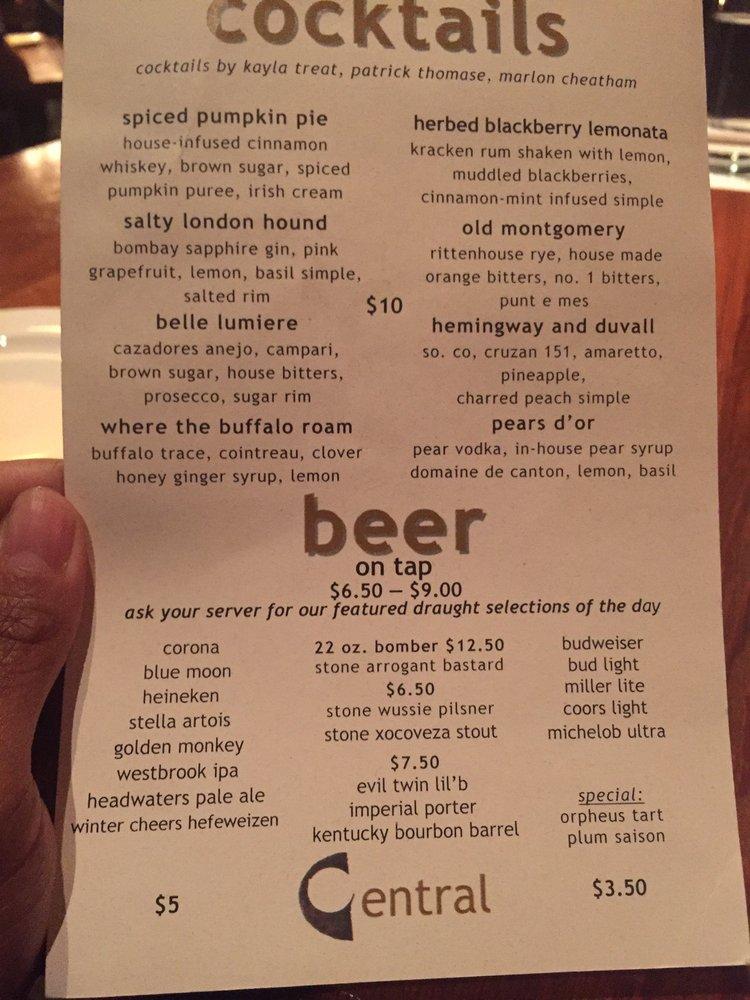 cocktails
cocktails by kayla treat, patrick thomase, marlon cheatham
spiced pumpkin pie
house-infused cinnamon
whiskey, brown sugar, spiced
pumpkin puree, irish cream
salty london hound
bombay sapphire gin, pink
grapefruit, lemon, basil simple,
salted rim
belle lumiere
cazadores anejo, campari,
brown sugar, house bitters,
prosecco, sugar rim
where the buffalo roam
buffalo trace, cointreau, clover
honey ginger syrup, lemon
$10
herbed blackberry lemonata
kracken rum shaken with lemon,
muddled blackberries,
cinnamon-mint infused simple
old montgomery
rittenhouse rye, house made
orange bitters, no. 1 bitters,
punt e mes
hemingway and duvall
so. co, cruzan 151, amaretto,
pineapple,
charred peach simple
pears d'or
pear vodka, in-house pear syrup
domaine de canton, lemon, basil
beer
on tap
$6.50 – $9.00
ask your server for our featured draught selections of the day
corona
blue moon
heineken
stella artois
golden monkey
westbrook ipa
headwaters pale ale
winter cheers hefeweizen
$5
22 oz. bomber $12.50
stone arrogant bastard
$6.50
stone wussie pilsner
stone xocoveza stout
$7.50
evil twin lil'b
imperial porter
kentucky bourbon barrel
budweiser
bud light
miller lite
coors light
michelob ultra
special:
orpheus tart
plum saison
$3.50
Central